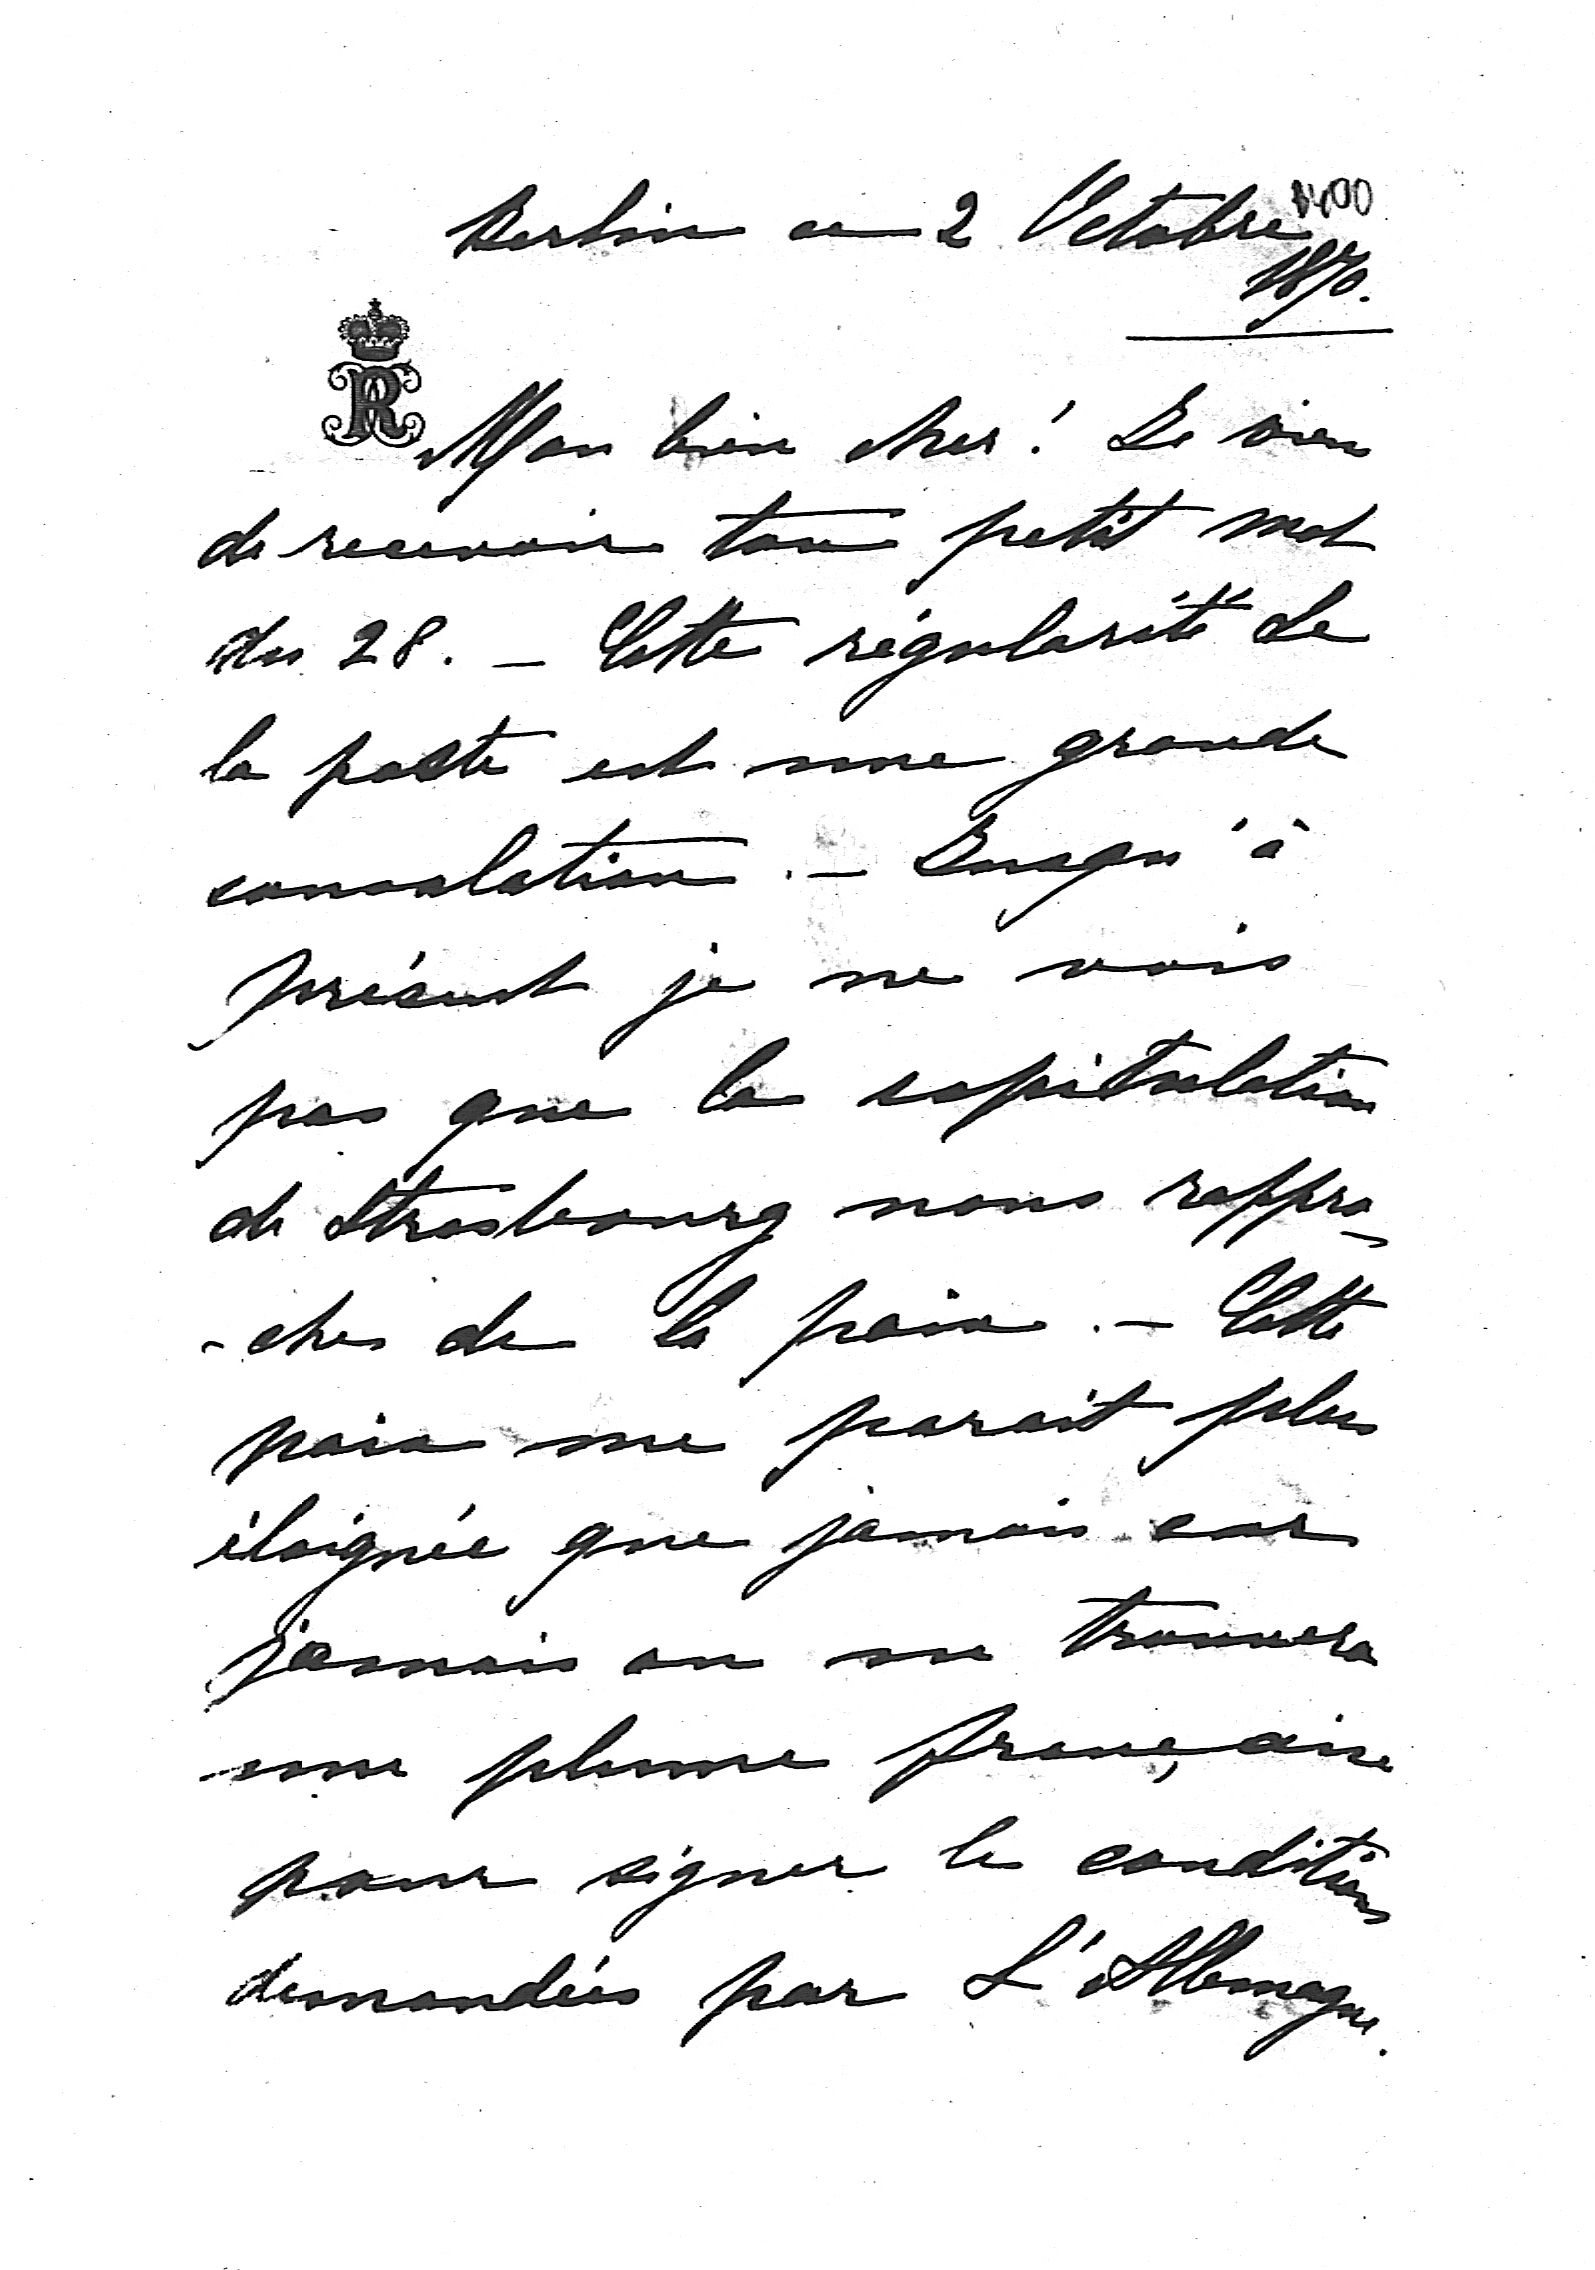 Berlin ce 2 Octobre
1870.
R
Mon bien cher! Je viens
de recevoir ton petit mot
du 28. – Cette régularité de
la poste est une grande
consolation. – Jusqu'à
présent je ne vois
pas que la capitulation
de Strasbourg nous rappro-
-che de la paix. – Cette
paix me parait plus
éloignée que jamais car
jamais on ne trouvera
une plume française
pour signer les conditions
demandées par L'Allemagne.